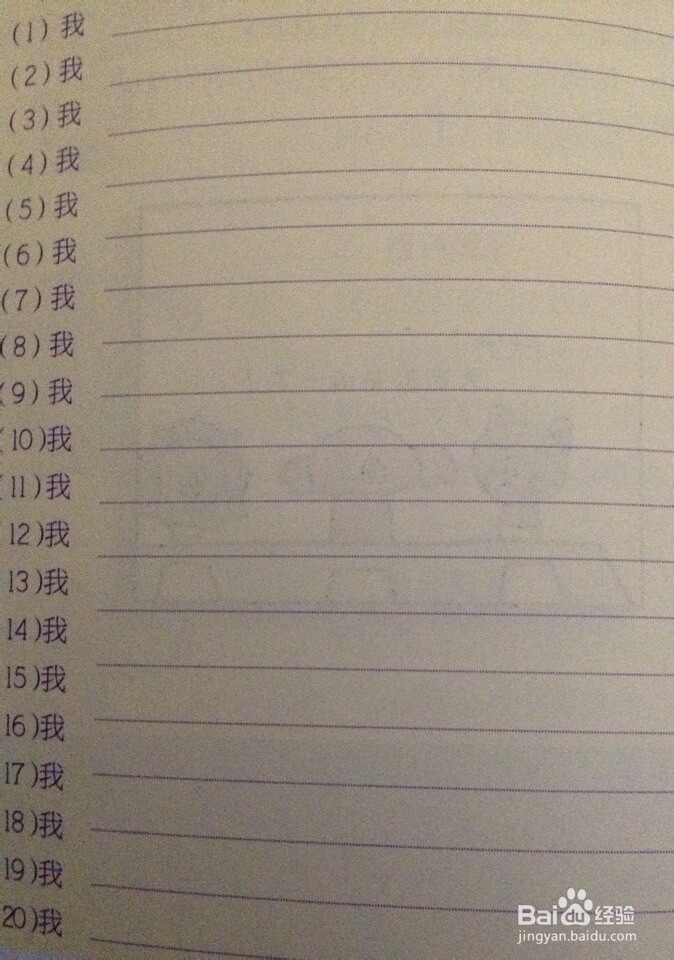 (1) 我
(2) 我
(3) 我
(4) 我
(5) 我
(6) 我
(7) 我
(8) 我
(9) 我
(10)我
(11)我
12)我
13)我
14)我
15)我
16)我
17)我
18)我
19)我
20)我
Baidu 经验
jingyan.baidu.com